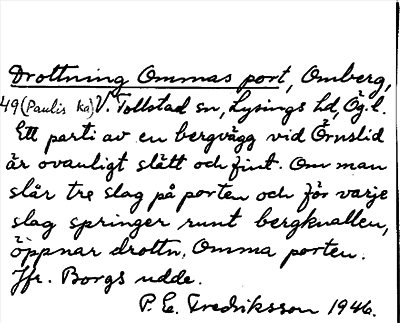 Drottning Ommas port, Omberg,
49 (Paulis ka) V. Tollstad sn, Lysings hd, Ög. l.
Ett parti av en bergvägg vid Örnslid
är ovanligt slätt och fint. Om man
slår tre slag på porten och för varje
slag springer runt bergknallen,
öppnar drottn. Omma porten.
Jfr. Borgs udde.
P. E. Fredriksson 1946.